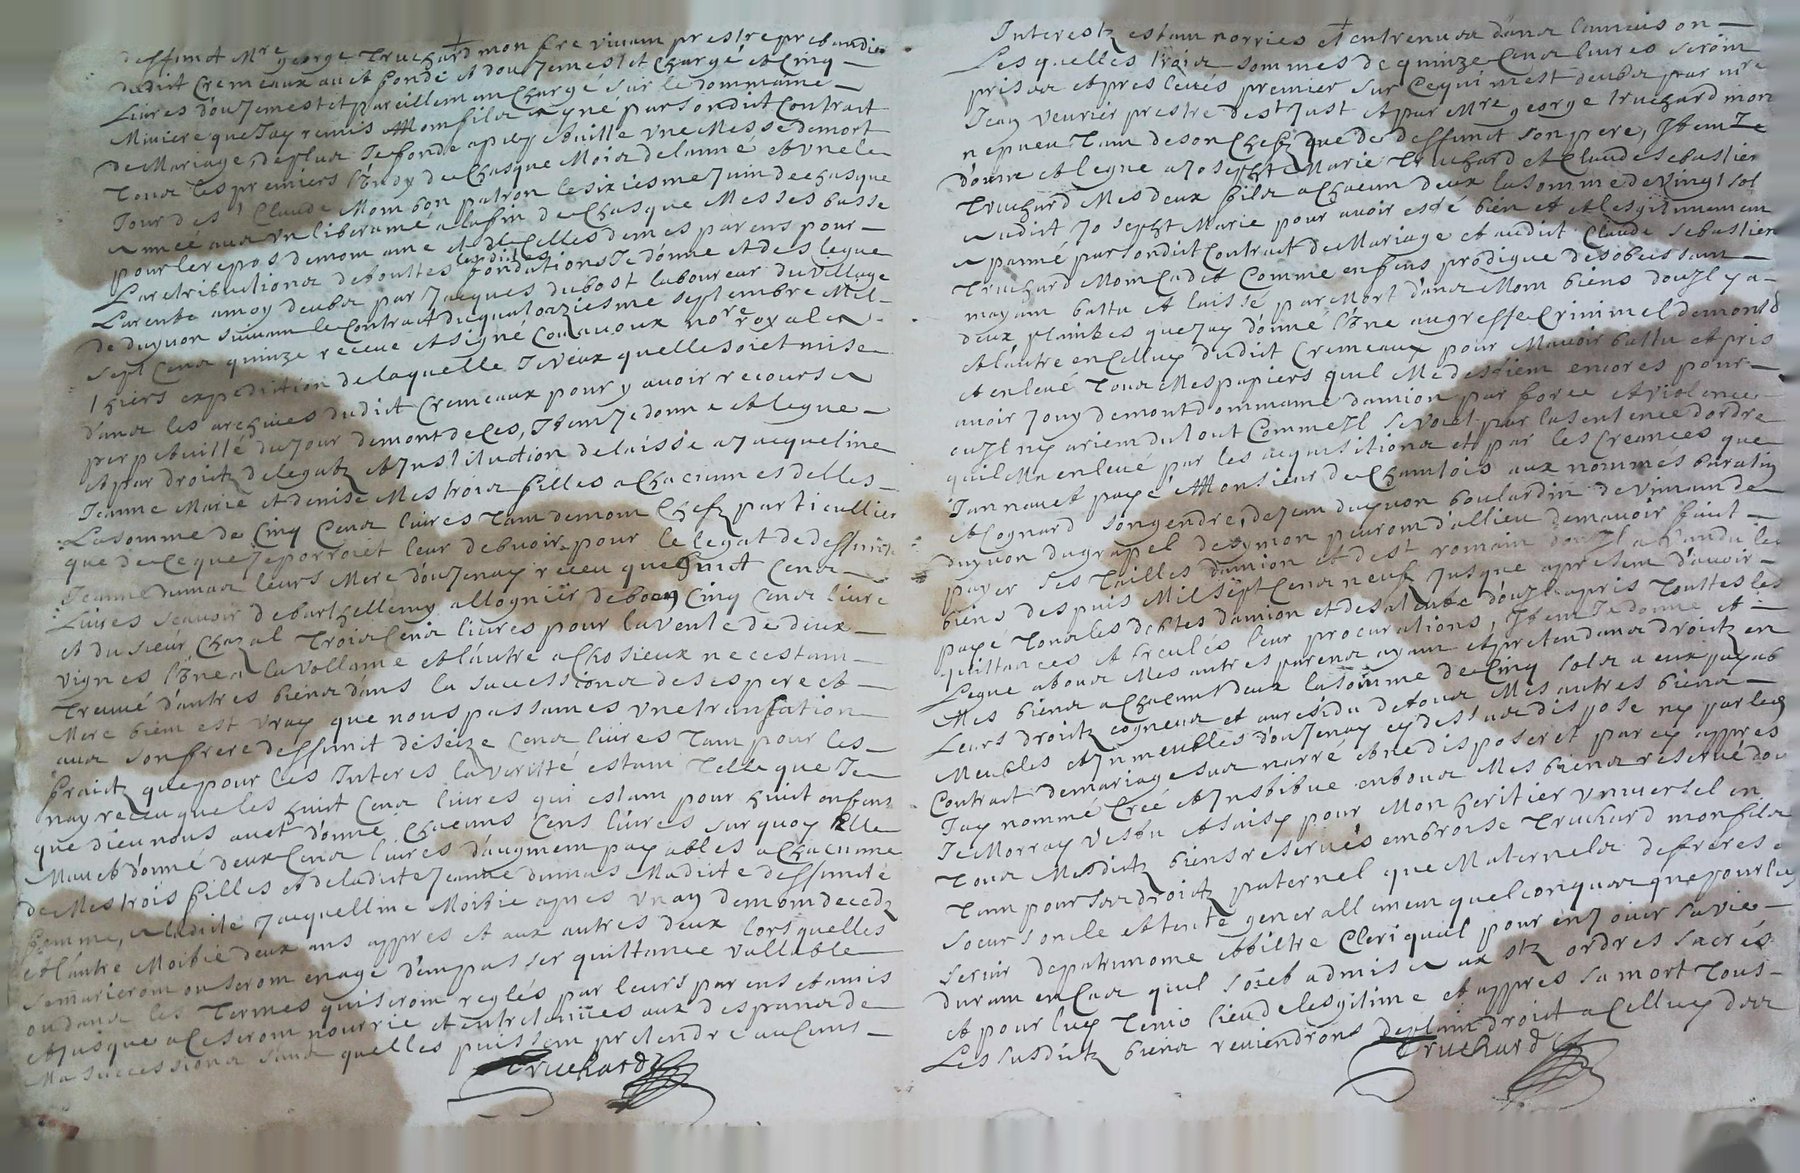 deffunct Mre george Truchard mon frere vivant prestre prebandier
dudict Cremeaux avoit fondé et dou Jemest et Chargé et Cinq
Livres dou Jemestet pareillemant Chargé sur le dommaine
Miniere que Jay remis A Monfils eyné par son dict Contract
de Mariage deplus Je fonde a perpetuitté une Messe de mort
Tous les premiers Lundy de chasque Mois de lanné et une le
Jour de st Claude Mom bon patron le sixiesme Juin de chasque
année avec un libera me a la fin de chasque Messes basse
pour le repos de mom ame et de Celles de mes parens pour
La retribution de touttes lesdittes fondations Je donne et des legue
La rente a moy deube par Jacques dubost laboureur du village
de duyuon suivant le Contract du quatorziesme septembre Mil
sept Cens quinze receue et signé Conavoux nore royal et
Thiers expedition de laquelle Je veux quelle soiet mise
dans les archives dudict Cremeaux pour y avoir recours a
perpetuitté du Jour de mont deces, Item Je donne et legue
et par droict de legatz et Institution delaisse a Jacqueline
Jeanne Marie et denise Mes trois filles a Chacunnes delles
La somme de Cinq Cens livres Tant de mom Chefz particullier
que de Ce que Je porroiet leur debvoir pour le legat de deffuncte
Jeanne dumas leurs Mere dou Jenay receu que huict Cens
Livres scavoir de barthellemy allognier de boen Cinq Cens livre
et du sieur Chazal Trois Cens livres pour la vente de deux
vignes L'une a la vollame et lautre a Chosieux ne cestant
Treuvé d'autres biens dans la succession de ses pere et
Mere bien est vray que nous passames une transation
avec son frere deffunct de seize Cens livres Tant pour les
fraictz que pour les Interes la verité estant Telle que Je
nay receu que les huict Cens livres qui estant pour huict enfans
que dieu nous avet donné Chacuns Cens livres sur quoy Elle
Mavet donné deux Cens livres daugment payables a Chacunne
de Mes trois filles et de ladicte Jeanne dumas Madicte deffuncte
femme, a ladicte Jacquelline Moitie apres un an de mom decedz
et lautre Moitié deux ans appres et aux autres deux lors quelles
se marieront ou seront en age d'em passer quittance vallable
ou dans les Termes qui seront reglés par leurs parens et amis
et Jusque a Ce seront nourrie et entretenues aux despans de
Ma succession sans quelles puissent pretendre aucuns
Truchard
Interestz estant norries et entrenues dans la maison
Lesquelles trois sommes de quinze Cens livres seront
prises et preslevés premier sur Ce qui m'est deubz par mre
Jean veurier prestre de st Just et par Mre george truchard mon
nepveu Tant de son Chefz que de deffunct son pere, Item Je
donne et legue a Joseph Marie Truchard et Claude sebastien
Truchard Mes deux fils a Chacun deux la somme de vingt sol
audict Joseph Marie pour avoir esté bien et et lesgitimemant
apanné par sondict Contract de Mariage et audict Claude sebastien
Truchard Mon Cadet Comme enfans prodigue desobeissant
mayant battu et laissé par Mort dans Mom biens dou Jl y a
deux plaintes que Jay donné L'une au greffe Criminel de montd
et lautre en Celluy dudict Cremeaux pour Mavoir battu et pris
et enlevé Tous Mes papiers quil Me destient encores pour
avoir Jouy de mont dommaine damion par force et violence
ou Jl ny a rien du tout Comme Jl se voiet par la sentence dordre
quil Ma enlevé par les acquisitions et par les Creances que
Jan navet payé A Monsieur de Chantois aux nommés buratin
et Cognard son gendre, de Jean duyuon boulardin devinant de
duyuon du grapel de symon peurom d'allieu de mavoir faict
payer ses Tailles damion et de st romain dou Jl a vandu les
biens despuis Mil sept Cens neufz Jusque apresent d'avoir
payé Tous les debtes damion et de st alente dou Jl a pris touttes les
quittances et reculés leur procurations, Item Je donne et
Legue a tous Mes autres parens ayant et pretendans droictz en
Mes biens a Chacuns deux la somme de Cinq sols a eux payab
Leurs droictz cogneus et au residu de tous Mes autres biens
Meubles et Inmeubles dou Jenay cy dessus dispose ny par led
Contract de mariage sus narré et ne disposeret par cy appres
Jay nommé Créé et Institue en tous Mes biens reservé dou
Je Morray vestu et saisy pour Mon heritier universel en
Tous Mesdictz biens reservés embroise Truchard mon fils
Tant pour ses droictz paternel que Maternels de freres
soeurs oncle et tente generallemant quelconques que pour luy
servir de patrimome et tiltre Clerical pour en Jouir sa vie
durant en Cas quil soiet admis aux stz ordres sacrés
et pour luy Tenis lieu de lesgitime et appres sa mort Tous
Les susdictz biens reviendrons de plain droict a Celluy des
Truchard